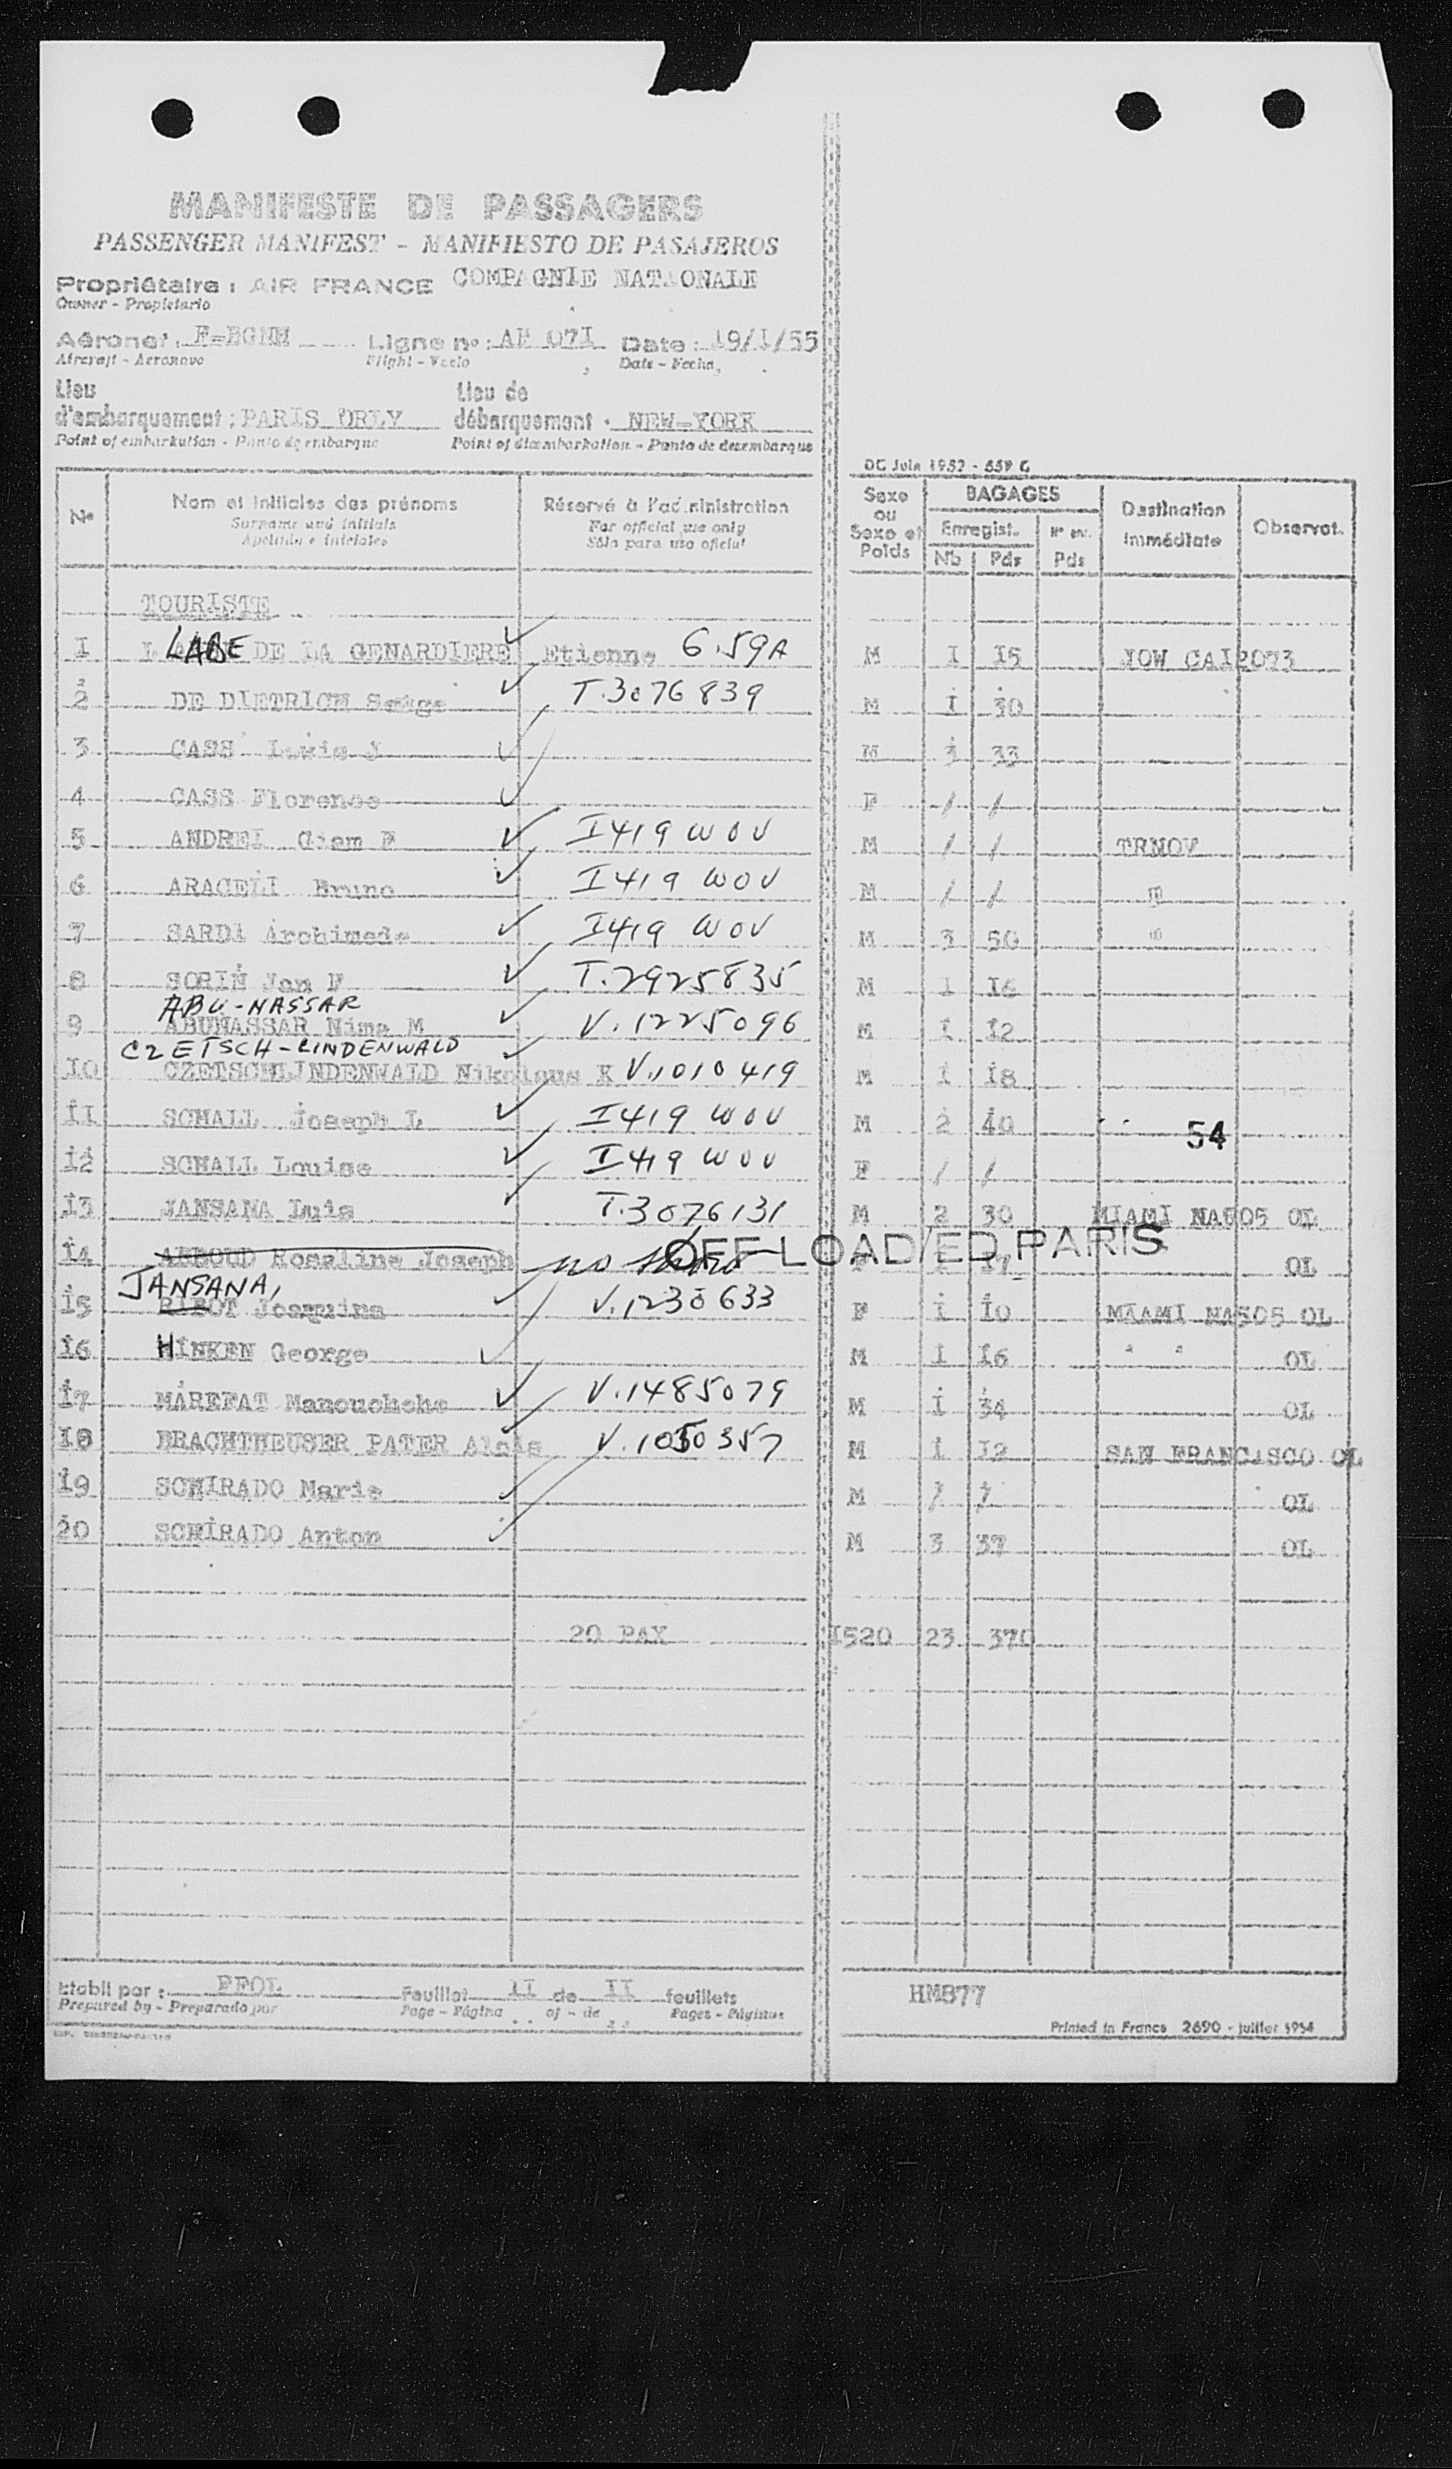 MANIFESTE DE PASSAGERS
PASSENGER MANIFEST - MANIFIESTO DE PASAJEROS
Propriétaire : AIR FRANCE COMPAGNIE NATIONALE
Owner - Propietario
Aéronef : F-BGNM Ligne nº : AF 071 Date : 19/1/55
Aircraft - Aeronave Flight - Vuelo Date - Fecha
Lieu d'embarquement : PARIS ORLY Lieu de débarquement : NEW-YORK
Point of embarkation - Punto de embarque Point of disembarkation - Punto de desembarque
DC Juin 1952 - 559 G
Nº Nom et initiales des prénoms Réservé à l'administration Sexe ou Sexe et Poids BAGAGES Destination immédiate Observat.
Surname and initials For official use only Enregist. Nº enr.
Apellido e iniciales Sólo para uso oficial Nb Pds Pds
TOURISTE
1 LABE DE LA GENARDIERE Etienne 6.59A M 1 15 YOW CA12073
2 DE DIETRICH Serge T.3076839 M 1 30
3 CASS Louis J M 3 33
4 CASS Florence F / /
5 ANDREI Giam F I419 WOV M / / TRNOV
6 ARACELI Bruno I419 WOV M / / "
7 SARDA Archimede I419 WOV M 3 50 "
8 SORIN Jan F T.2925835 M 1 16
ABU-NASSAR
9 ABUNASSAR Nima M V.1225096 M 1 12
CZETSCH-LINDENWALD
10 CZETSCHLINDENWALD Nikolaus K V.1010419 M 1 18
11 SCHALL Joseph L I419 WOV M 2 40
54
12 SCHALL Louise I419 WOV F / /
13 JANSANA Luis T.3076131 M 2 30 MIAMI NA505 OL
14 ABBOUD Rosaline Joseph no show OFF LOADED PARIS F 1 17 OL
JANSANA,
15 RIBOT Joaquina V.1230633 F 1 10 MIAMI NA505 OL
16 HINKEN George M 1 16 " " OL
17 MAREFAT Manouchehr V.1485079 M 1 34 OL
18 BRACHTHEUSER PATER Alois V.1050357 M 1 12 SAN FRANCISCO OL
19 SCHIRADO Marie M / / OL
20 SCHIRADO Anton M 3 37 OL
20 PAX 1520 23 370
Etabli par : PFOL Feuillet II de II feuillets HM877
Prepared by - Preparado por Page - Página of - de Pages - Páginas
Printed in France 2690 - juillet 1954